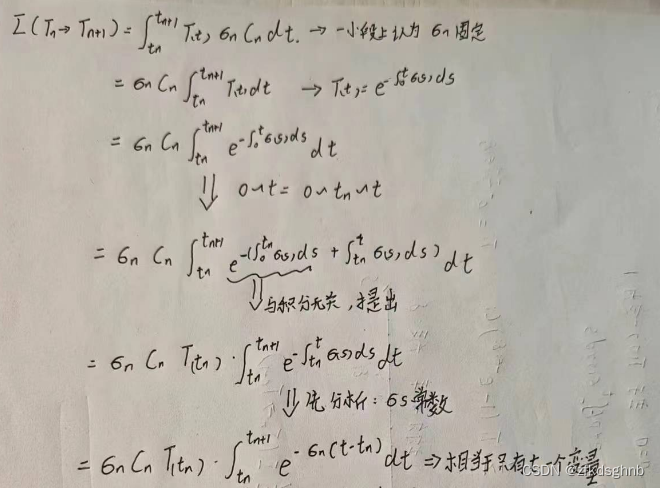 I(Tn→Tn+1) = ∫_{tn}^{tn+1} T(t) σn Cn dt. → 一小段上认为 σn 固定
= σn Cn ∫_{tn}^{tn+1} T(t) dt → T(t) = e^{-∫_0^t σ(s) ds}
= σn Cn ∫_{tn}^{tn+1} e^{-∫_0^t σ(s) ds} dt
⇓ 0~t = 0~tn~t
= σn Cn ∫_{tn}^{tn+1} e^{-(∫_0^{tn} σ(s) ds + ∫_{tn}^t σ(s) ds)} dt
⇓ 与积分无关,提出
= σn Cn T(tn) · ∫_{tn}^{tn+1} e^{-∫_{tn}^t σ(s) ds} dt
⇓ 先分析: σs 常数
= σn Cn T(tn) · ∫_{tn}^{tn+1} e^{-σn(t-tn)} dt ⇒ 相当于只有 t 一个变量
CSDN @zjkdsghnb